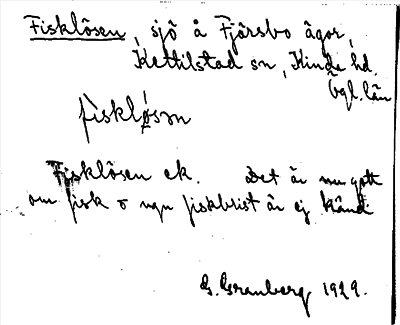 Fisklösen, sjö å Fjärsbo ägor,
Kettilstad sn, Kinda hd.
Ögl. län
fisklo̤sən
Fisklösen ek. Det är nu gott
om fisk o ngn fiskbrist är ej känd.
G. Granberg 1929.